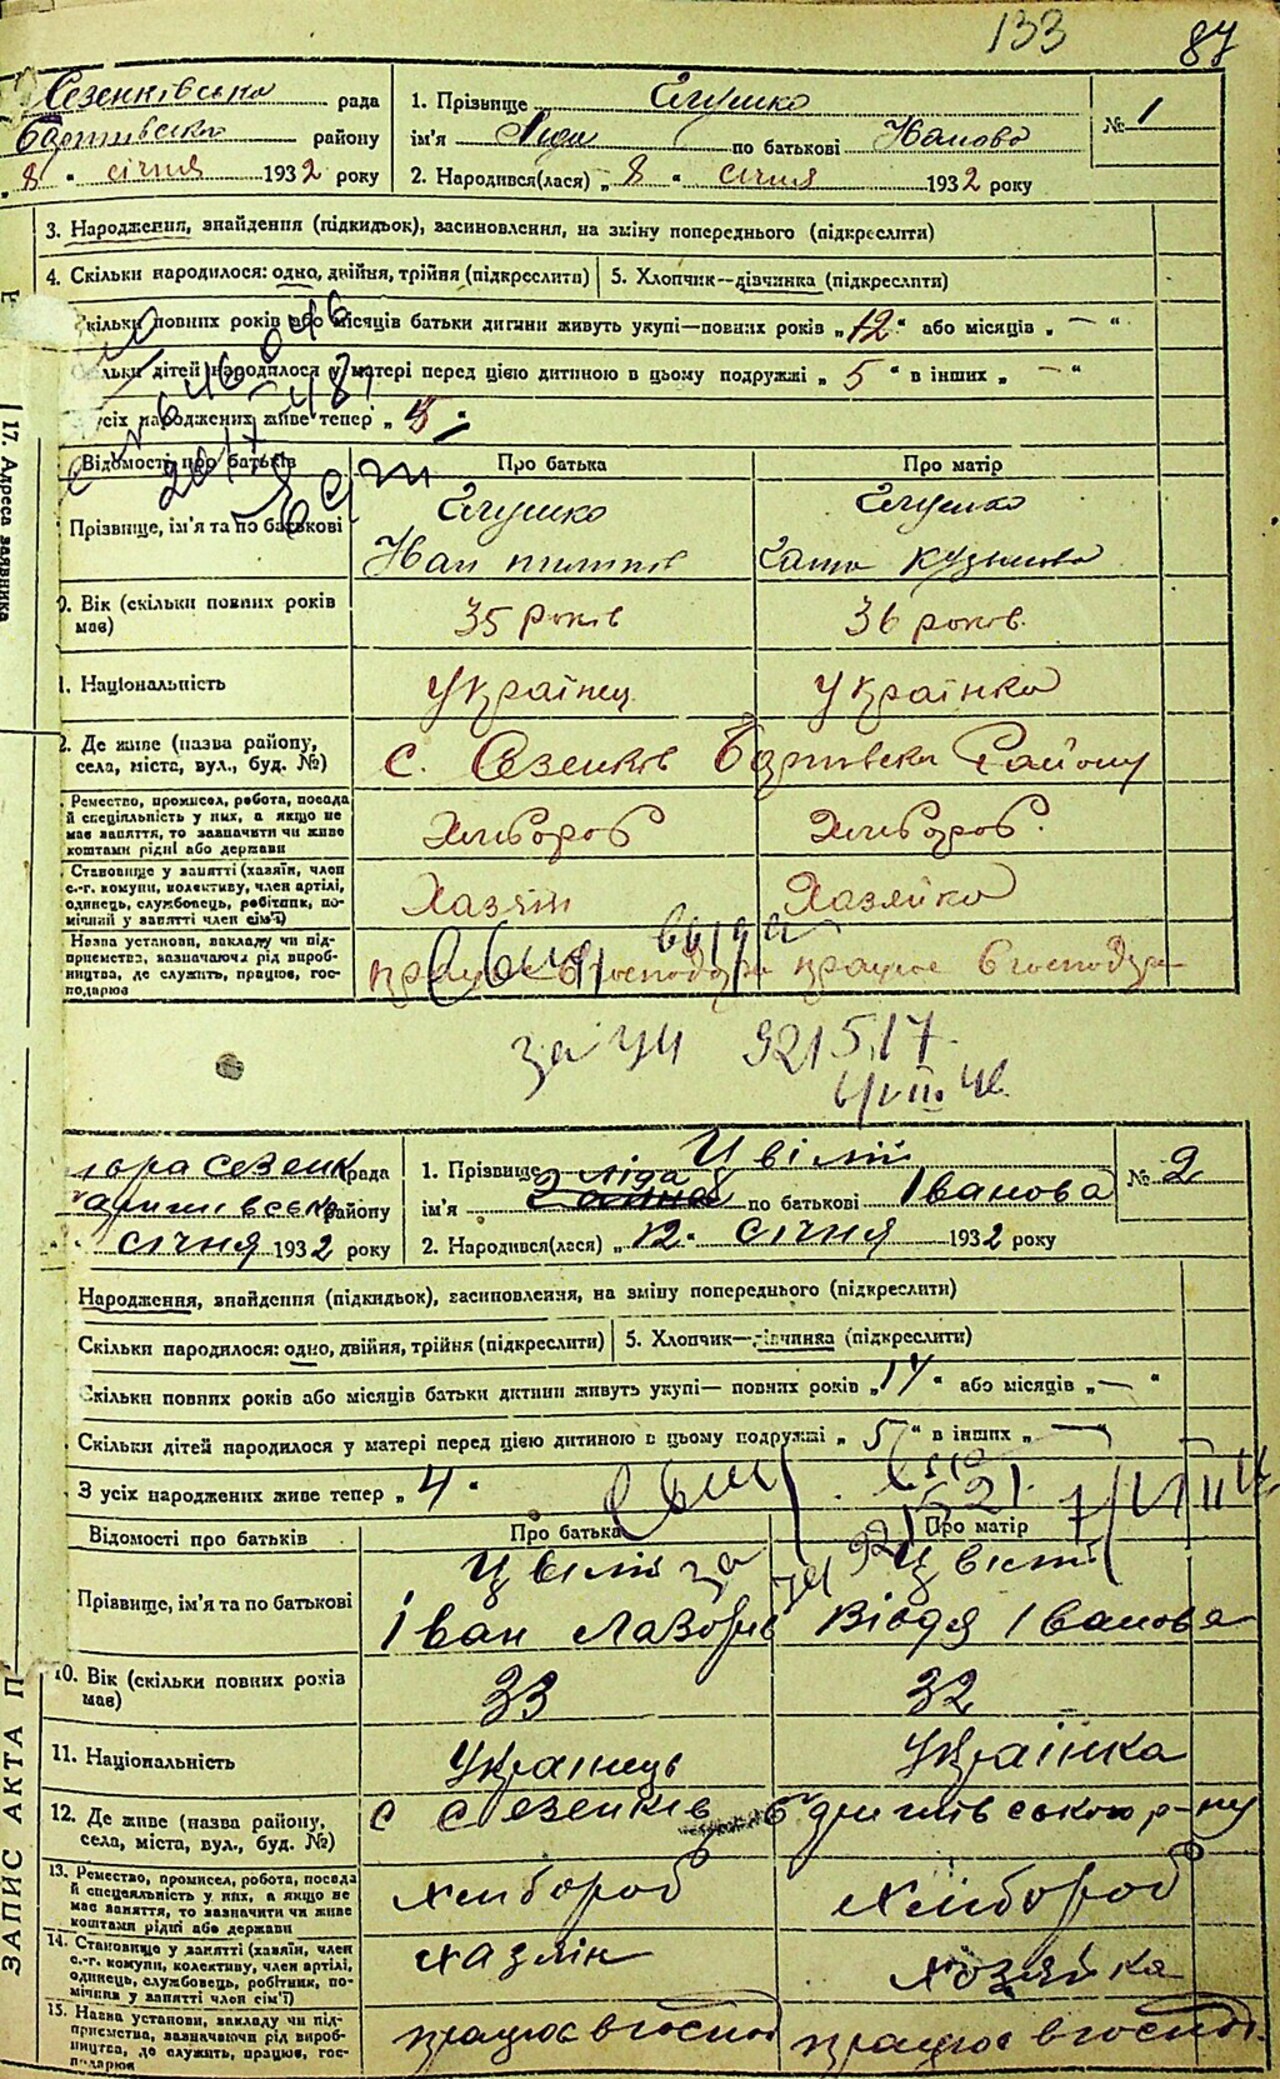 133 87
Сезенківська рада
1. Прізвище Глушко
№ 1
Баришівського району
ім'я Ліда по батькові Іванова
„8" січня 1932 року
2. Народився(лася) „8" січня 1932 року
3. Народження, знайдення (підкидьок), засиновлення, на зміну попереднього (підкреслити)
4. Скільки народилося: одно, двійня, трійня (підкреслити) 5. Хлопчик—дівчинка (підкреслити)
Скільки повних років або місяців батьки дитини живуть укупі—повних років „12" або місяців „—"
дітей народилося у матері перед цією дитиною в цьому подружжі „5" в інших „—"
усіх народжених живе тепер „5"
Відомості про батьків Про батька Про матір
Прізвище, ім'я та по батькові
Глушко Глушко
Іван Пилипів Кузьмова
Вік (скільки повних років має)
35 років 36 років
Національність Українец Українка
Де живе (назва району, села, міста, вул., буд. №)
с. Сезенків Району
Ремество, промисел, робота, посада й спеціяльність у них, а якщо не має заняття, то зазначити чи живе коштами рідні або держави
Хлібороб Хлібороб
Становище у занятті (хазяїн, член с.-г. комуни, колективу, член артілі, одинець, службовець, робітник, помічний у занятті член сім'ї)
Хазяїн Хазяйка
Назва установи, закладу чи підприємства, зазначаючи рід виробництва, де служить, працює, господарює
працює в господар працює в господар
за УИ 921517
Сезенк рада
1. Прізвище Цвілій
№ 2
району
ім'я Ліда по батькові Іванова
січня 1932 року
2. Народився(лася) „12" січня 1932 року
Народження, знайдення (підкидьок), засиновлення, на зміну попереднього (підкреслити)
Скільки народилося: одно, двійня, трійня (підкреслити) 5. Хлопчик—дівчинка (підкреслити)
Скільки повних років або місяців батьки дитини живуть укупі— повних років „14" або місяців „—"
Скільки дітей народилося у матері перед цією дитиною в цьому подружжі „5" в інших „—"
З усіх народжених живе тепер „4"
Відомості про батьків Про батька Про матір
Прізвище, ім'я та по батькові
Цвілій Цвілій
Іван Лазорів Іванова
10. Вік (скільки повних років має)
33 32
11. Національність Українець Українка
12. Де живе (назва району, села, міста, вул., буд. №)
с Сезенків Баришівського р-ну
13. Ремество, промисел, робота, посада й спеціяльність у них, а якщо не має заняття, то зазначити чи живе коштами рідні або держави
хлібороб хлібороб
14. Становище у занятті (хазяїн, член с.-г. комуни, колективу, член артілі, одинець, службовець, робітник, помічник у занятті член сім'ї)
хазяїн хозяйка
15. Назва установи, закладу чи підприємства, зазначаючи рід виробництва, де служить, працює, господарює
працює в госпо працює в госпо
17. Адреса заявника
ЗАПИС АКТА П